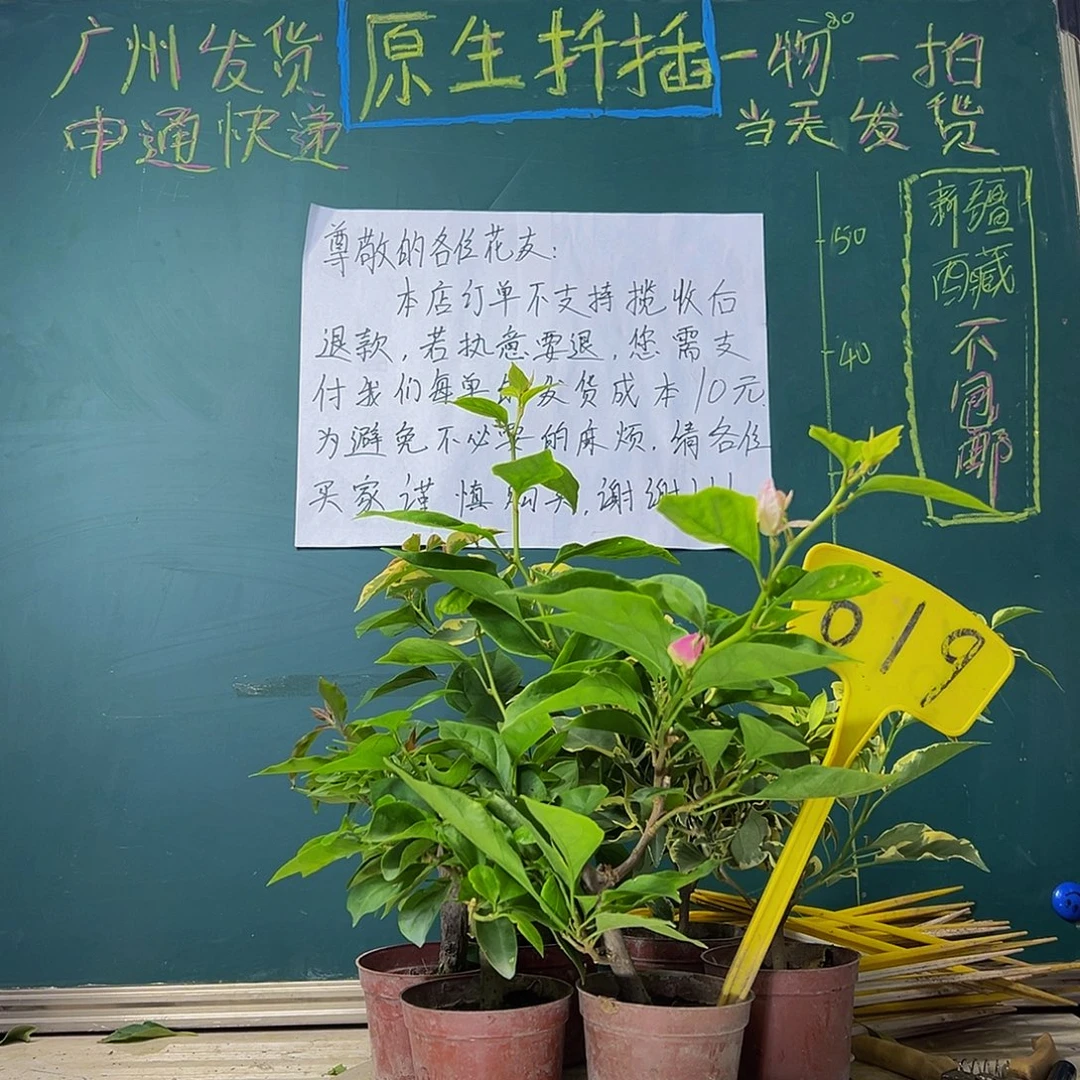 广州发货
申通快递
原生扦插
一物一拍
当天发货
80
50
40
新疆
西藏
不包邮
尊敬的各位花友:
本店订单不支持揽收后
退款,若执意要退,您需支
付我们每单的发货成本10元.
为避免不必要的麻烦.请各位
买家谨慎购买,谢谢!!!
019